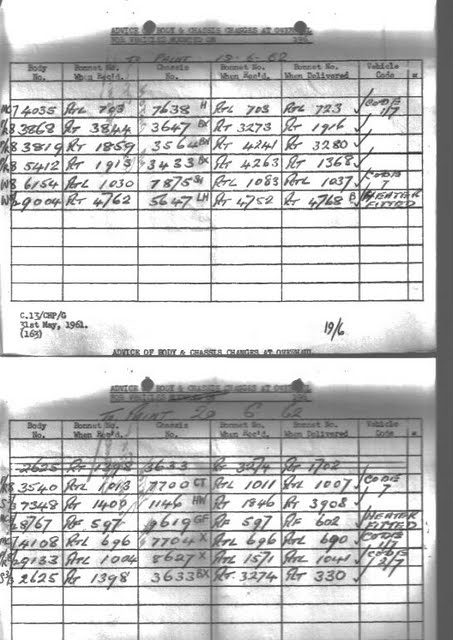 ADVICE OF BODY & CHASSIS CHANGES AT OVERHAUL
FOR VEHICLES
TO PAINT 18-6-62
Body No. Bonnet No. When Rec'd. Chassis No. Bonnet No. When Rec'd. Bonnet No. When Delivered Vehicle Code *
4035 RTL 703 7638 H RTL 703 RTL 723 CODE 1/7
3868 RT 3844 3647 BX RT 3273 RT 1916
3819 RT 1859 3564 BX RT 4241 RT 3280
5412 RT 1913 3433 BX RT 4263 RT 1368
W8 6154 RTL 1030 7875 RTL 1083 RTL 1037 CODE 7
9004 RT 4762 5647 LH RT 4752 RT 4768 B HEATER FITTED
C.13/CHF/G
31st May, 1961.
(163)
19/6
ADVICE OF BODY & CHASSIS CHANGES AT OVERHAUL
ADVICE OF BODY & CHASSIS CHANGES AT OVERHAUL
FOR VEHICLES
TO PAINT 20 6 62
Body No. Bonnet No. When Rec'd. Chassis No. Bonnet No. When Rec'd. Bonnet No. When Delivered Vehicle Code *
2625 RT 1398 3633 RT 3274 RT 1702
3540 RTL 1013 7700 CT RTL 1011 RTL 1007 CODE 7
7348 RT 1400 1146 HW RT 1846 RT 3908
8167 RF 597 9619 GF RF 597 RF 602 HEATER FITTED
4108 RTL 696 7704 X RTL 696 RTL 690 CODE 1/7
9133 RTL 1004 8627 X RTL 1571 RTL 1041 CODE 2/7
2625 RT 1398 3633 BX RT 3274 RT 330